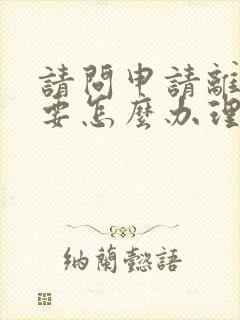 請問申請離
要怎麼办理
納蘭懿語